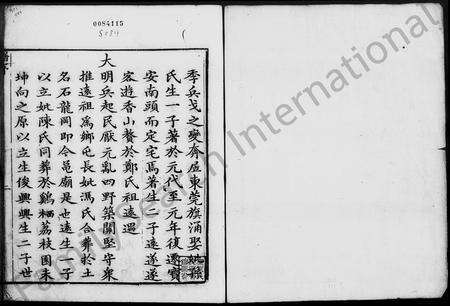 0084115
季兵戈之變奔居東莞旗涌娶姚孫
氏生一子著於元代至元年復遷寶
安南頭而定宅焉著生一子遠遂
客遊香山贅於鄭氏祖遠遇
大
明兵起民厭元亂四野築關堅守衆
推遠祖爲鄉屯長妣馮氏合葬於土
名石龍岡即今邑廟是也遠生一子
以立妣陳氏同葬於鷄栖荔枝園未
坤向之原以立生俊興興生二子世
FamilySearch International